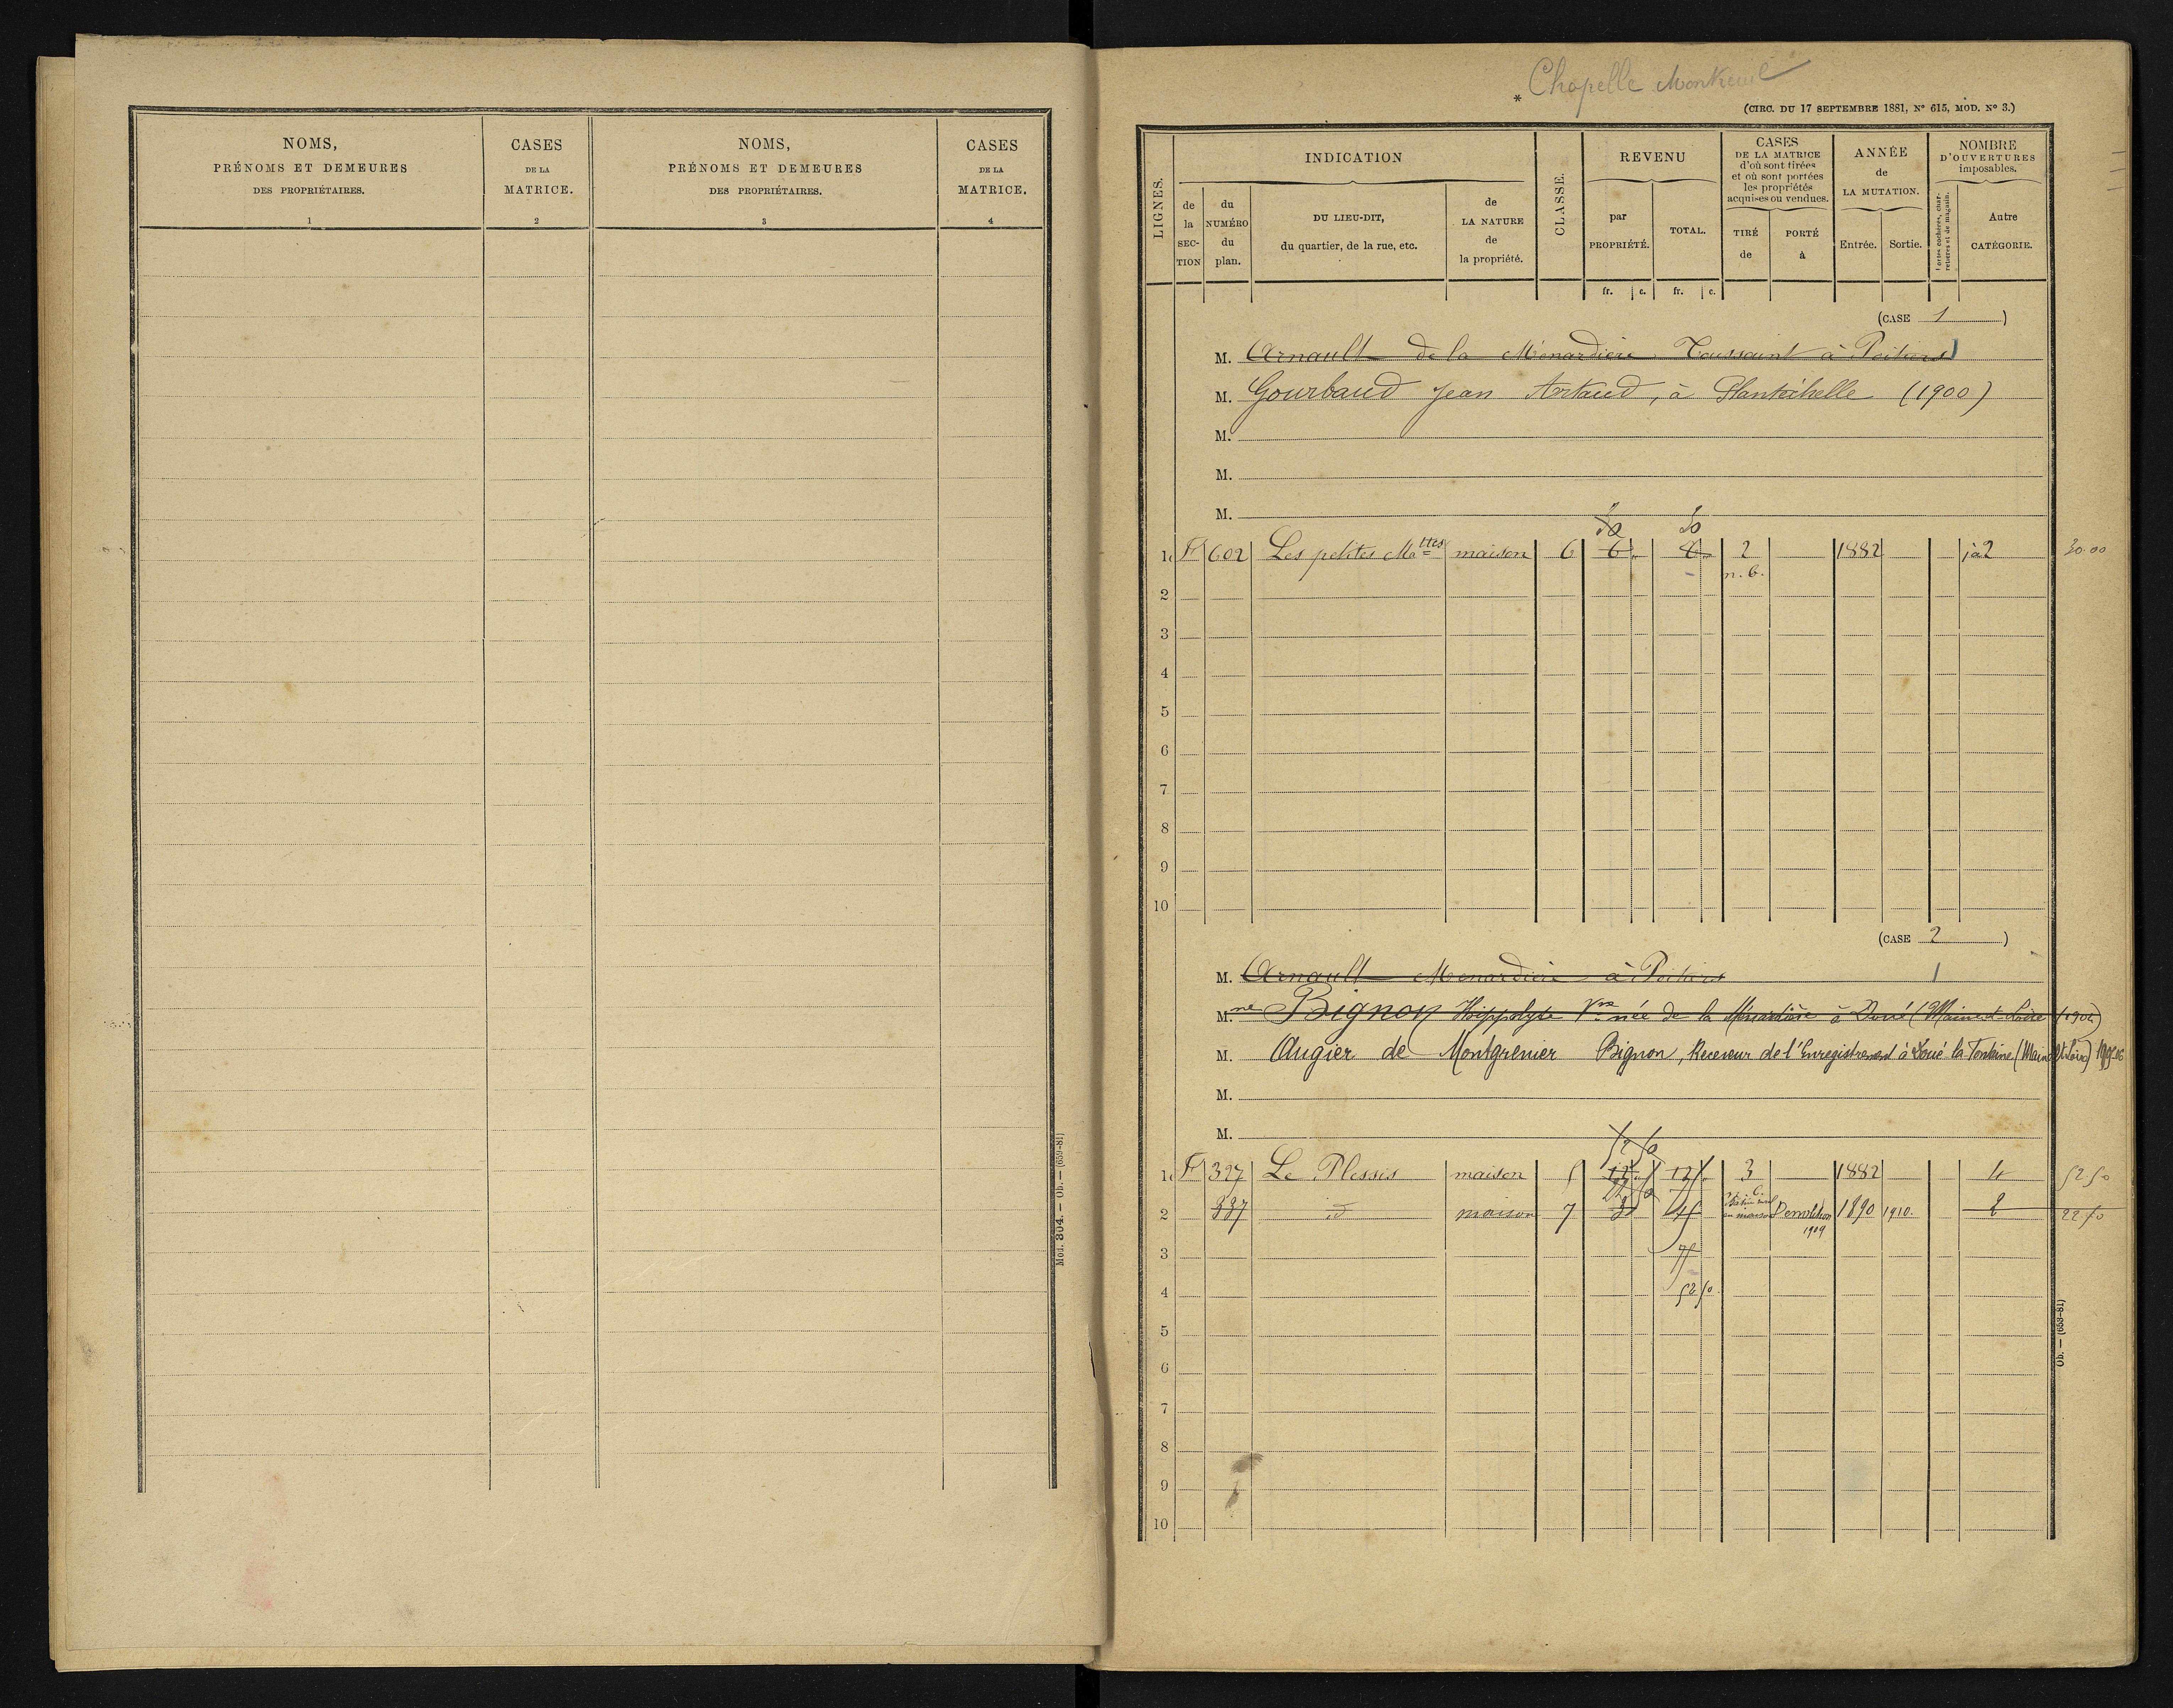 NOMS,
PRÉNOMS ET DEMEURES
DES PROPRIÉTAIRES.
1
CASES
DE LA
MATRICE.
2
NOMS,
PRÉNOMS ET DEMEURES
DES PROPRIÉTAIRES.
3
CASES
DE LA
MATRICE.
4
Mod. 304. — Ob. — (659-81)
* Chapelle
(CIRC. DU 17 SEPTEMBRE 1881, N° 615, MOD. N° 3.)
LIGNES.
INDICATION
de la SECTION
du NUMÉRO du plan.
DU LIEU-DIT,
du quartier, de la rue, etc.
de LA NATURE de la propriété.
CLASSE.
REVENU
par PROPRIÉTÉ.
TOTAL.
fr. c. fr. c.
CASES
DE LA MATRICE
d'où sont tirées
et où sont portées
les propriétés
acquises ou vendues.
TIRÉ de
PORTÉ à
ANNÉE
de
LA MUTATION.
Entrée. Sortie.
NOMBRE
D'OUVERTURES
imposables.
Portes cochères, charretières et de magasin.
Autre
CATÉGORIE.
(CASE 1)
M. Arnault de la Ménardière Toussaint à Poitiers
M. Gourbaud Jean Artaud, à (1900)
M.
M.
M.
1 F 602 Les petites maison 6 6 2 1882 2 30.00
n.b.
2
3
4
5
6
7
8
9
10
(CASE 2)
M. Arnault Menardière à Poitiers
M.me Bignon Hippolyte Vve née de la Ménardière à Doué (Maine et Loire)
M. Augier de Montgrenier Bignon, Receveur de l'Enregistrement à Doué la Fontaine (Maine et Loire)
M.
M.
1 F 327 Le Plessis maison 5 3 1882 4 52 50
2 337 id maison 7 Démolition 1909 1890 1910. 2 22 50
3
4 52 50
5
6
7
8
9
10
Ob. — (659-81)